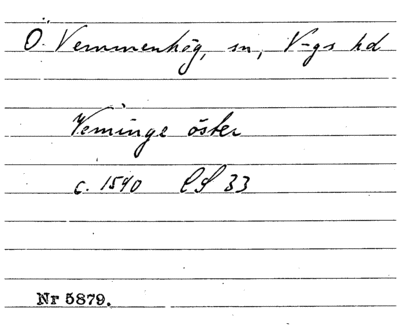 Ö. Vemmenhög, sn, V-gs hd
Veminge öster
c. 1540 LS 33
Nr 5879.